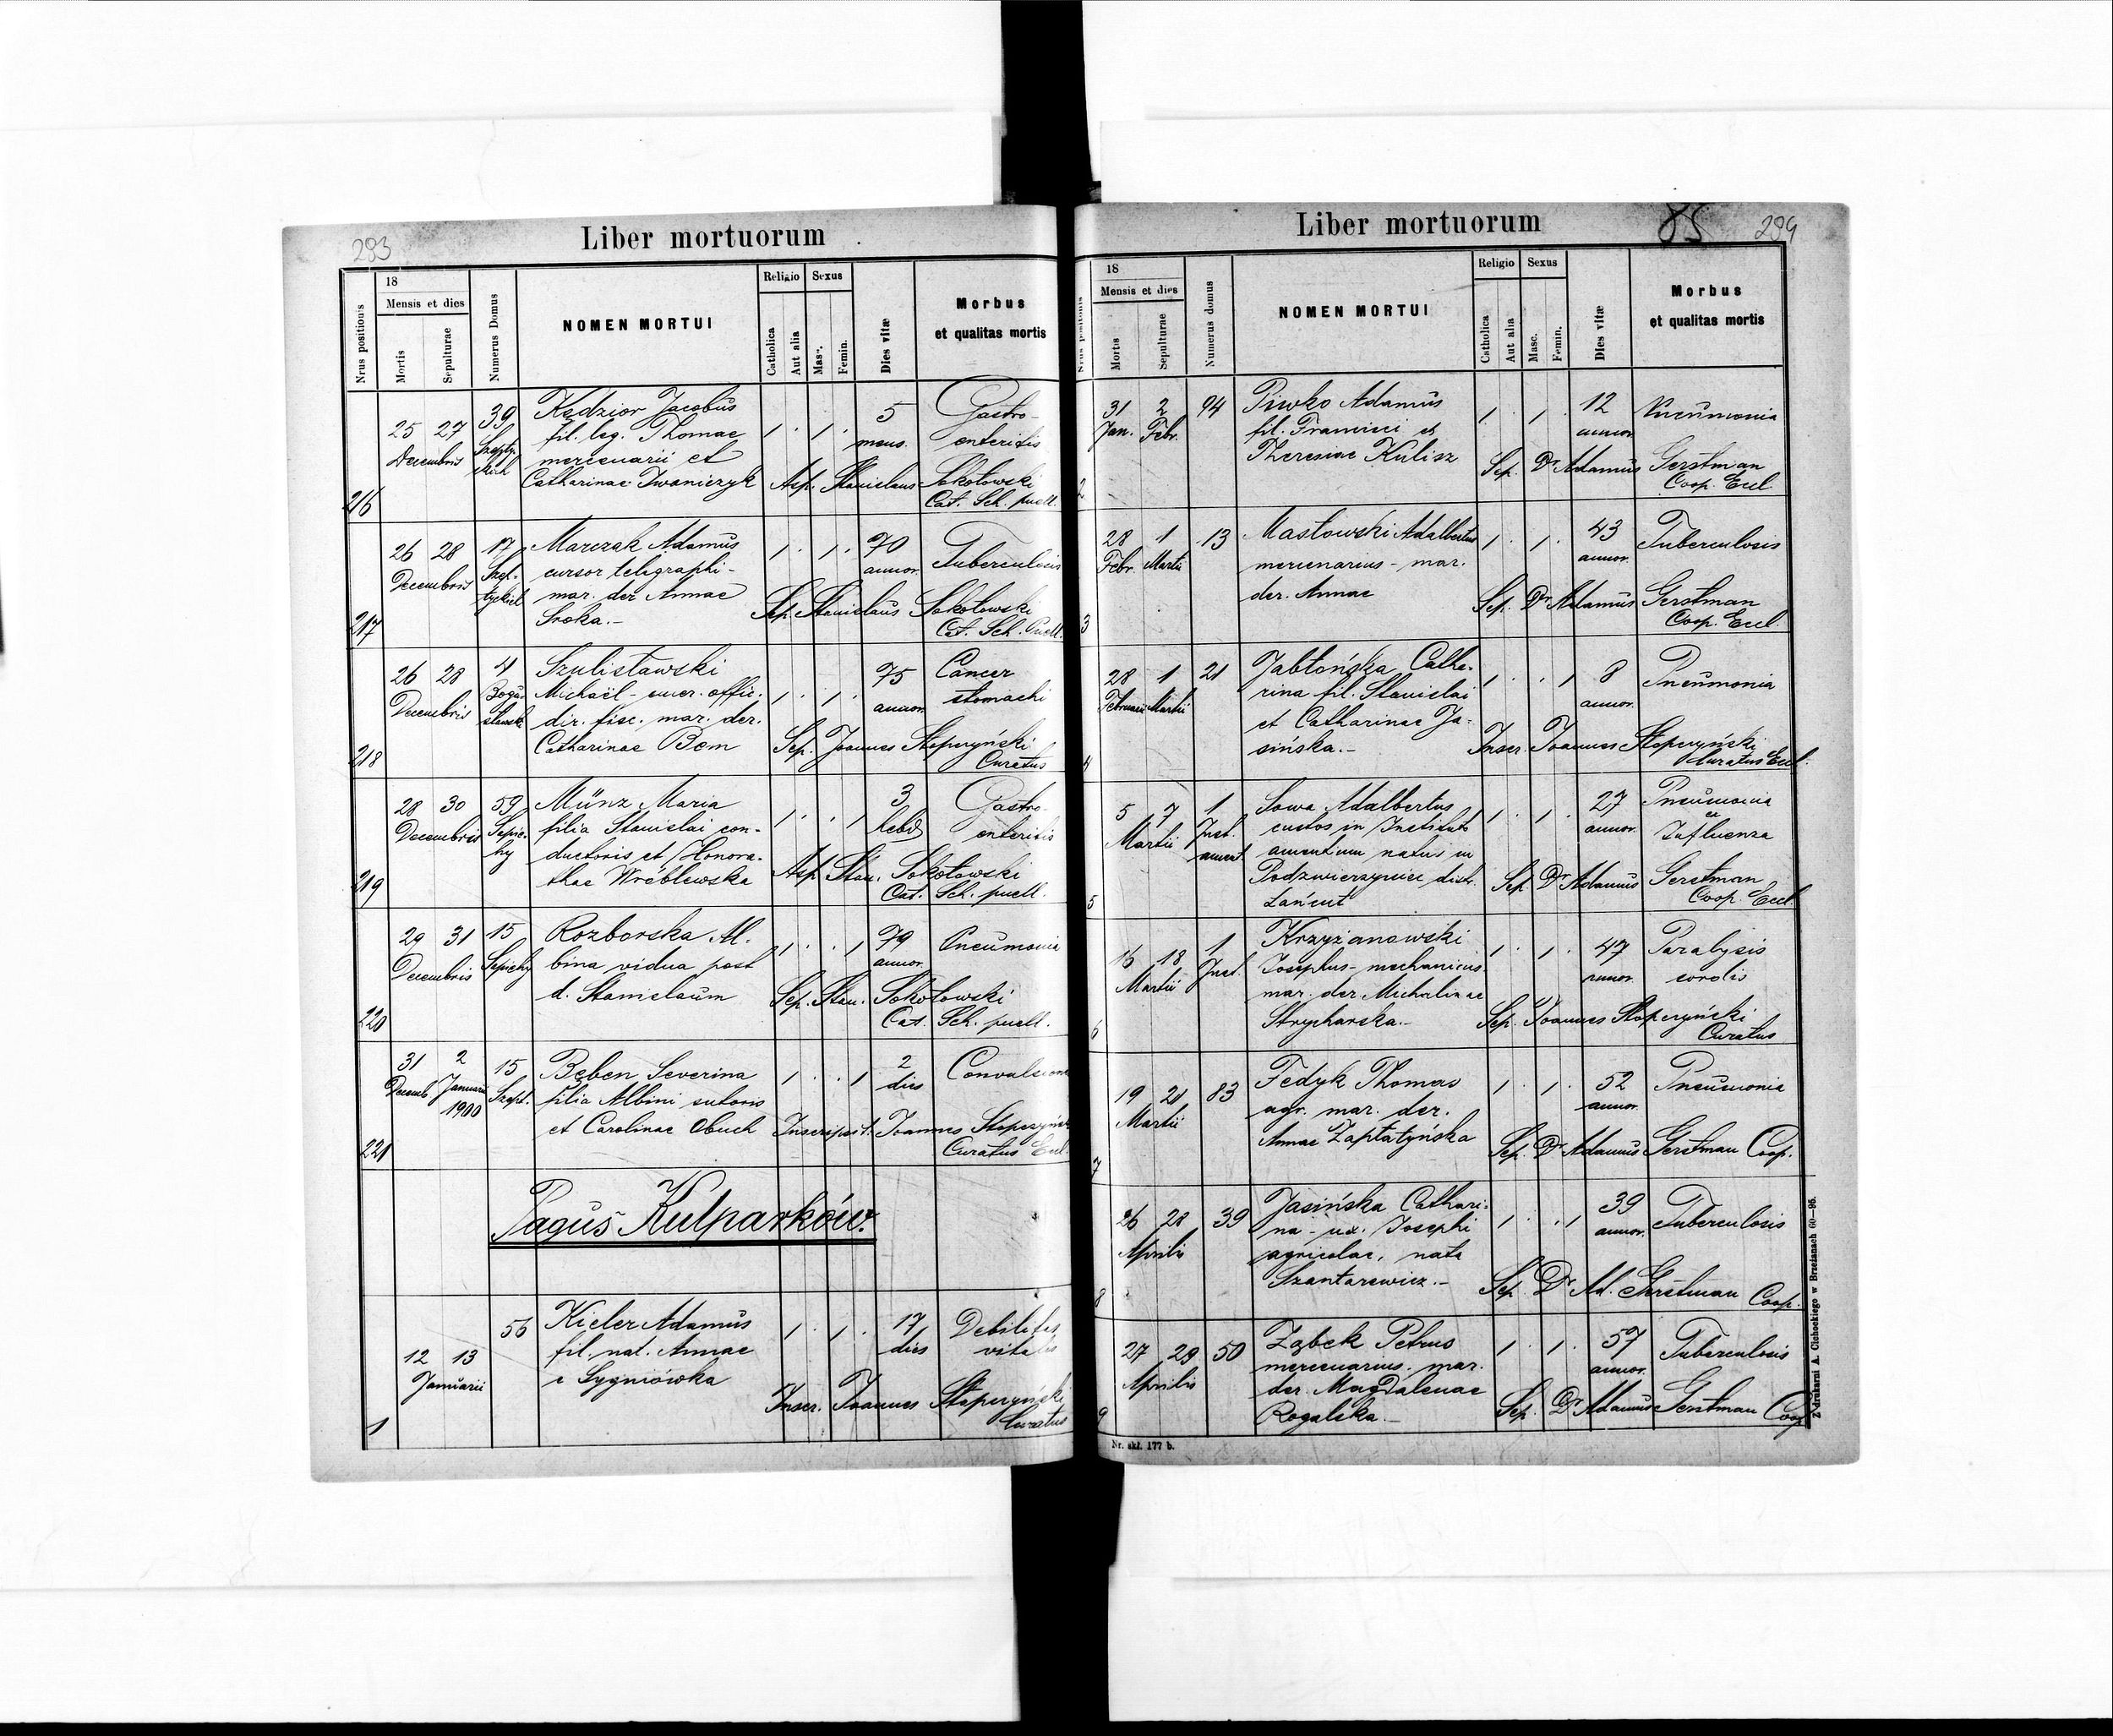 293
Liber mortuorum
Nrus positionis
18
Mensis et dies
Mortis
Sepulturae
Numerus Domus
NOMEN MORTUI
Religio
Catholica
Aut alia
Sexus
Masc.
Femin.
Dies vitæ
Morbus
et qualitas mortis
39 Kędzior Jacobus 5 Gastro-
25 27 fil. leg. Thomae mens. enteritis
Decembris mercenarii et
216 Catharinae Iwaniczyk Asp. Stanislaus Sokołowski
Cat. Sch. puell.
26 28 17 Marczak Adamus 70
Decembris Szep- cursor telegraphi- annor. Tuberculosis
tyckich mar. der Annae
217 Sroka.- Sep. Stanislaus Sokołowski
Cat. Sch. Puell.
26 28 4 Szulisławski 75 Cancer
Decembris Bogu- Michaël - emer. offic. annor. stomachi
sławski dir. fisc. mar. der.
218 Catharinae Bom Sep. Joannes Stopczyński
Curatus
28 30 59 Münz Maria 3 Gastro-
Decembris Sapie- filia Stanislai con- hebd enteritis
hy ductoris et Honora-
219 thae Wróblewska Asp. Stan. Sokołowski
Cat. Sch. puell.
29 31 15 Rozborska Al- 79 Pneumonia
Decembris Sapiehy bina vidua post annor.
220 d. Stanislaum Sep. Stan. Sokołowski
Cat. Sch. puell.
31 2 15 Bęben Severina 2 Convulsiones
Decemb Januarii Szept. filia Albini sutoris dies
1900 et Carolinae Obuch Inscripsit. Joannes Stopczyński
221 Curatus Eccl.
Pagus Kulparków.
56 Kieler Adamus 17 Debilitas
12 13 fil. nat. Annae dies vitalis
Januarii e Sygniówka
1 Inscr. Joannes Stopczyński
Curatus
85 294
Liber mortuorum
Nrus positionis
18
Mensis et dies
Mortis
Sepulturae
Numerus domus
NOMEN MORTUI
Religio
Catholica
Aut alia
Sexus
Masc.
Femin.
Dies vitæ
Morbus
et qualitas mortis
31 2 94 Piwko Adamus 12 Pneumonia
Jan. Febr. fil. Francisci et annor
2 Theresiae Kulisz Sep. Dr Adamus Gerstman
Coop. Eccl.
28 1 13 Masłowski Adalbertus 43 Tuberculosis
Febr. Martii mercenarius - mar. annor.
3 der. Annae Sep. Dr Adamus Gerstman
Coop. Eccl.
28 1 21 Jabłońska Cathe- 8 Pneumonia
Februarii Martii rina fil. Stanislai annor.
et Catharinae Ja-
4 sińska.- Inscr. Joannes Stopczyński
Curatus Eccl.
5 7 1 Sowa Adalbertus 27 Pneumonia
Martii Inst. custos in Instituto annor. ex
ament. amentium natus in Influenza
Podzwierzyniec distr. Sep. Dr Adamus Gerstman
5 Łańcut Coop. Eccl.
16 18 1 Krzyżanowski 47 Paralysis
Martii Inst. Josephus - mechanicus annor cordis
mar. der Michalinae
6 Strycharska.- Sep. Joannes Stopczyński
Curatus
19 21 83 Fedyk Thomas 52 Pneumonia
Martii agr. mar. der. annor.
7 Annae Zapłatyńska Sep. Dr Adamus Gerstman Coop.
26 28 39 Jasińska Cathari- 39 Tuberculosis
Aprilis na - ux. Josephi annor.
agricolae, nata
8 Szantarewicz.- Sep. Dr Ad. Gerstman Coop.
27 29 50 Ząbek Petrus 57 Tuberculosis
Aprilis mercenarius. mar. annor.
der. Magdalenae
9 Rogalska.- Sep. Dr Adamus Gerstman Coop
Nr. skł. 177 b.
Z drukarni A. Cichockiego w Brzeżanach 60—95.